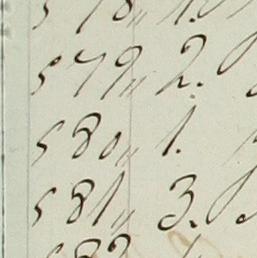 578 〃 1.
579 〃 2.
580 〃 1.
581 〃 3.
582